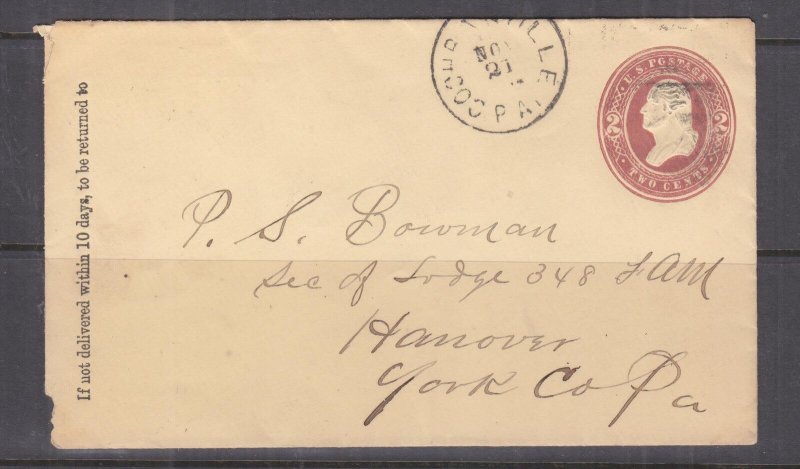 If not delivered within 10 days, to be returned to
COCHRANVILLE
NOV
21
PA.
U.S. POSTAGE
2 2
TWO CENTS
P. S. Bowman
Sec of Lodge 348 F AM
Hanover
York Co Pa